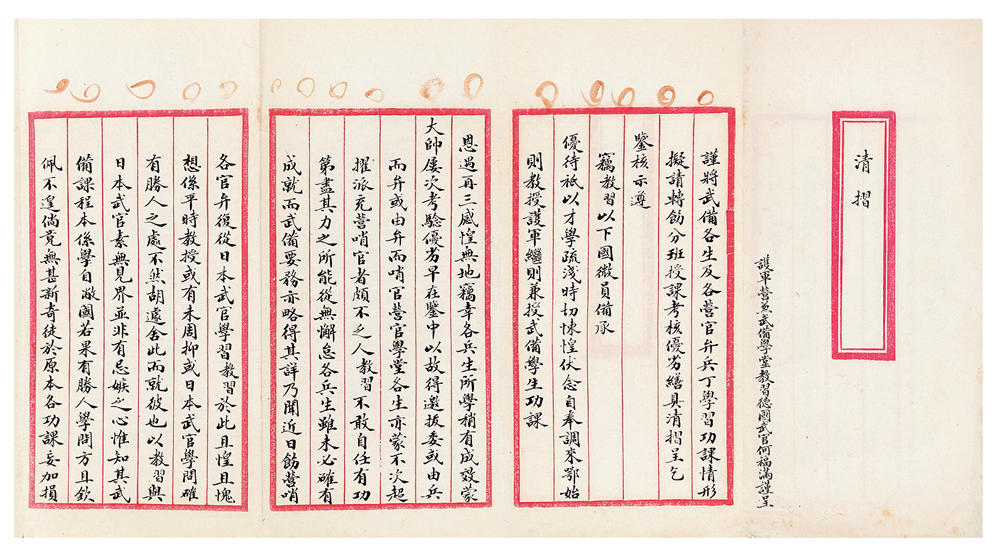 清摺
護軍營兼武備學堂教習德國武官何福滿謹呈
謹將武備各生及各營官弁兵丁學習功課情形
擬請轉飭分班授課考核優劣繕具清摺呈乞
鑒核示遵
竊教習以下國微員備承
優待祇以才學疏淺時切悚惶伏念自奉調來鄂始
則教授護軍繼則兼授武備學生功課
恩遇再三感惶無地竊幸各兵生所學稍有成效蒙
大帥屢次考驗優劣早在鑒中以故得邀拔委或由兵
而弁或由弁而哨官營官學堂各生亦蒙不次超
擢派充營哨官者頗不乏人教習不敢自任有功
第盡其力之所能從無懈怠各兵生雖未必確有
成就而武備要務亦略得其詳乃聞近日飭營哨
各官弁復從日本武官學習教習於此且惶且愧
想係平時教授或有未周抑或日本武官學問確
有勝人之處不然胡遽舍此而就彼也以教習與
日本武官素無見界並非有忌嫉之心惟知其武
備課程本係學自敝國若果有勝人學問方且欽
佩不遑倘竟無甚新奇徒於原本各功課妄加損